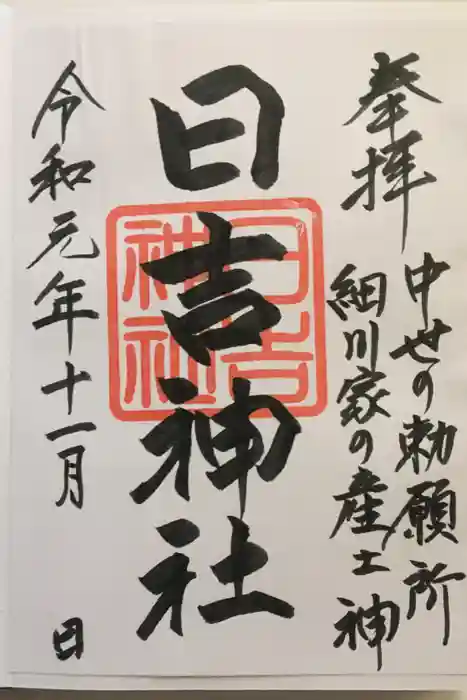 奉拝
中世の勅願所
細川家の産土神
日吉神社
日吉神社
令和元年十一月 日